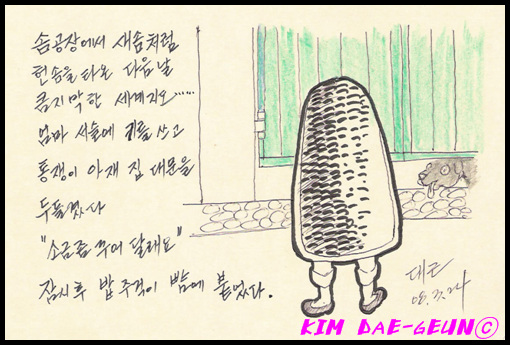 솜공장에서 새솜처럼
헌솜을 타온 다음날
큼지막한 세계지도......
엄마 서슬에 키를 쓰고
통쟁이 아재 집 대문을
두들겼다
"소금좀 주이 달래요"
잠시후 밥주걱이 빰에 붙었다.
대근
08. 3. 24
KIM DAE-GEUN©